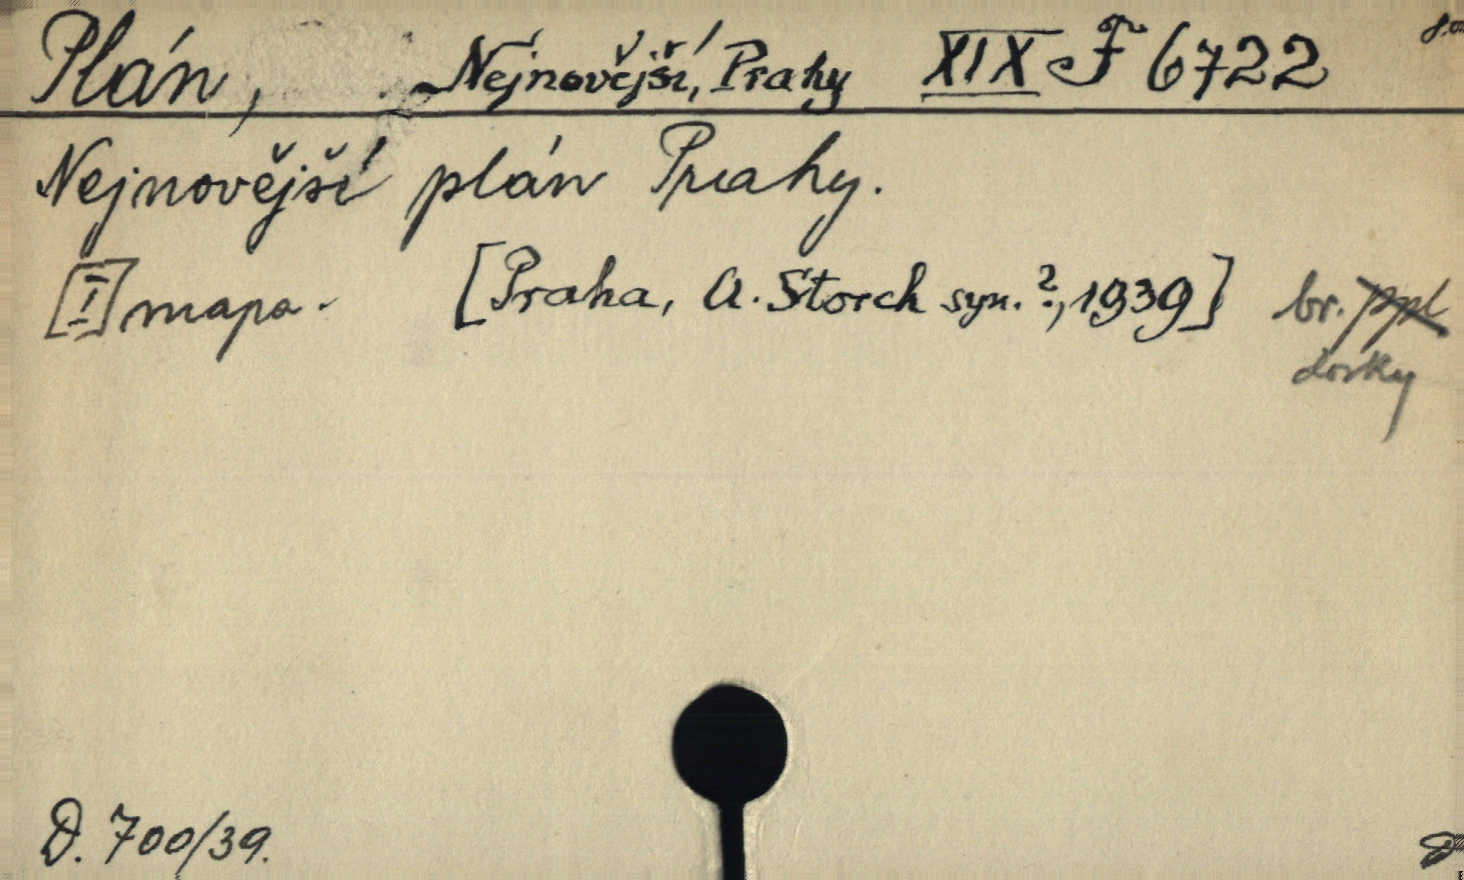 Plán, Nejnovější, Prahy XIX F 6722
Nejnovější plán Prahy.
[I] mapa. [Praha, A. Storch syn.?, 1939] br. ppl
dosky
D. 700/39.